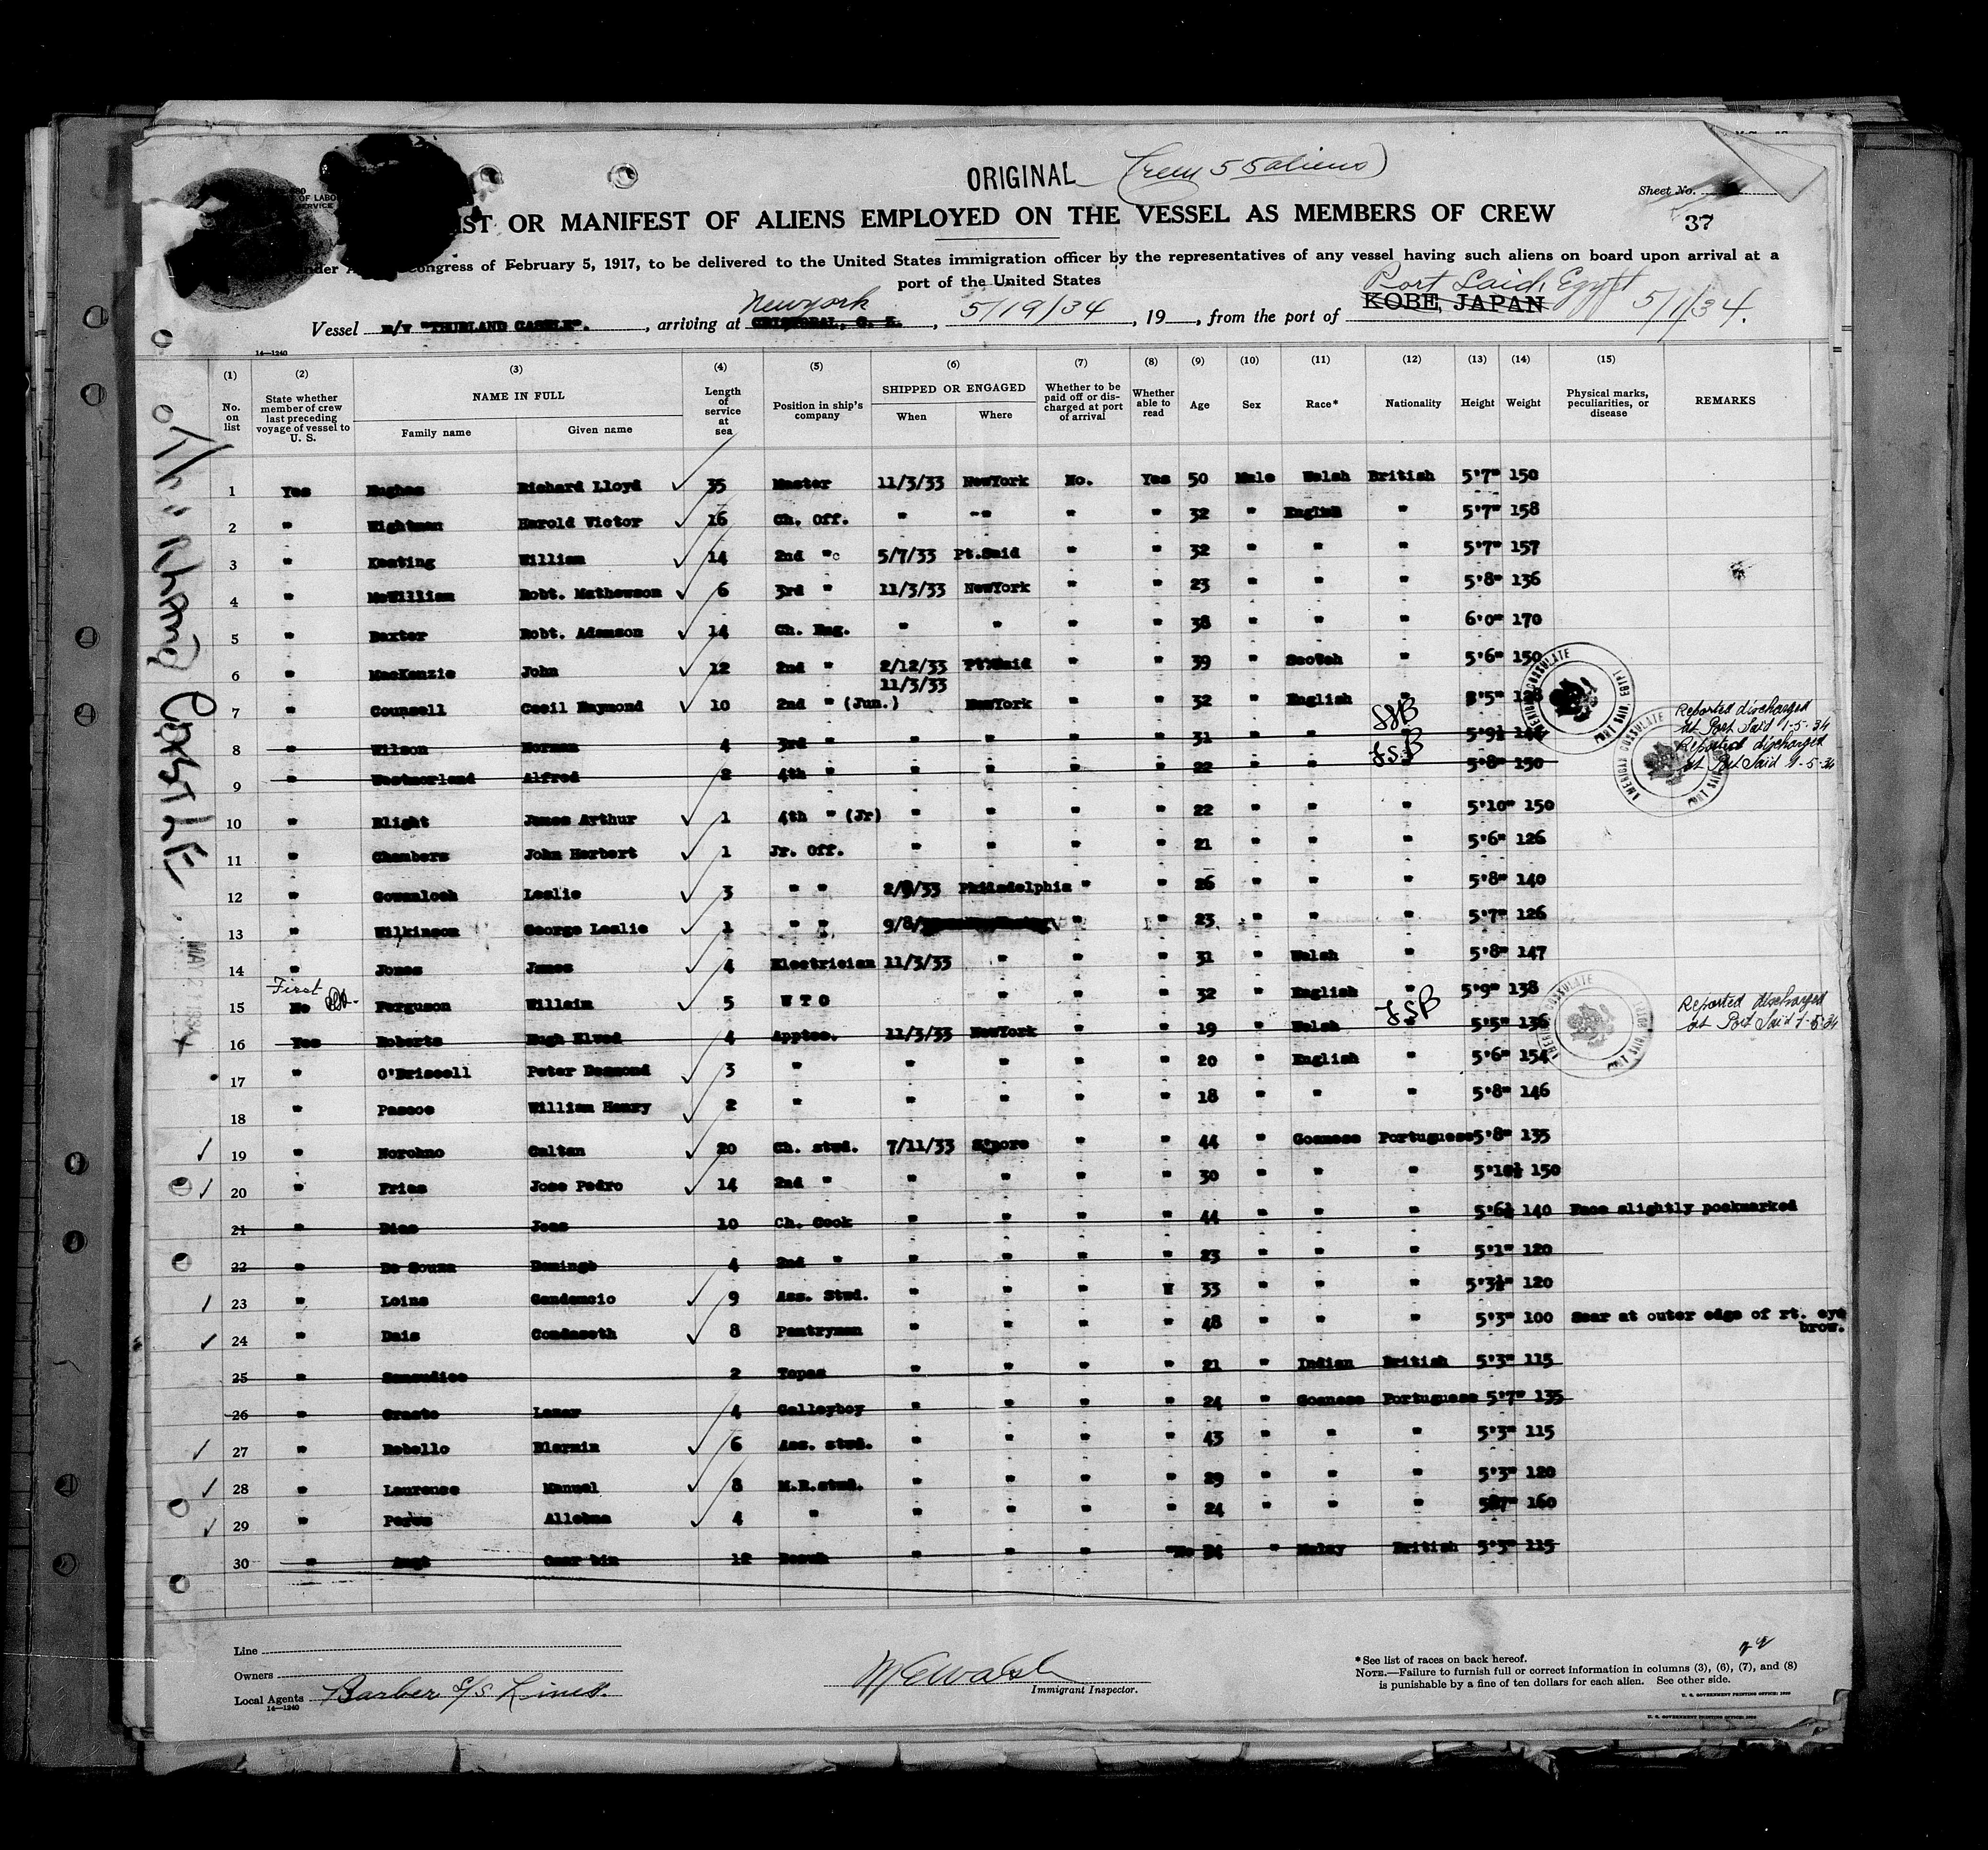 ORIGINAL (Crew 55 aliens)
Sheet No.
37
IST OR MANIFEST OF ALIENS EMPLOYED ON THE VESSEL AS MEMBERS OF CREW
ongress of February 5, 1917, to be delivered to the United States immigration officer by the representatives of any vessel having such aliens on board upon arrival at a
port of the United States
New York Port Said, Egypt
Vessel m/v "THURLAND CASTLE". , arriving at CRISTOBAL, C. Z. , 5/19/34 , 19 , from the port of KOBE, JAPAN 5/1/34.
14—1240
(1) (2) (3) (4) (5) (6) (7) (8) (9) (10) (11) (12) (13) (14) (15)
No. on list State whether member of crew last preceding voyage of vessel to U. S. NAME IN FULL Family name Given name Length of service at sea Position in ship's company SHIPPED OR ENGAGED When Where Whether to be paid off or discharged at port of arrival Whether able to read Age Sex Race* Nationality Height Weight Physical marks, peculiarities, or disease REMARKS
1 Yes Hughes Richard Lloyd 35 Master 11/3/33 NewYork No. Yes 50 Male Welsh British 5'7" 150
2 " Wightman Harold Victor 16 Ch. Off. " "" " " 32 " English " 5'7" 158
3 " Keating William 14 2nd " 5/7/33 Pt.Said " " 32 " " " 5'7" 157
4 " McWilliam Robt. Mathewson 6 3rd " 11/3/33 NewYork " " 23 " " " 5'8" 136
5 " Baxter Robt. Adamson 14 Ch. Eng. " " " " 38 " " " 6'0" 170
6 " MacKenzie John 12 2nd " 2/12/33 Pt.Said " " 39 " Scotch " 5'6" 150
7 " Counsell Cecil Raymond 10 2nd " (Jun.) 11/3/33 NewYork " " 32 " English " 5'5"
8 " Wilson Norman 4 3rd " " " " " 31 " " " 5'9½ Reported discharged at Port Said 1-5-34
9 " Westmorland Alfred 2 4th " " " " " 22 " " " 5'8" 150 Reported discharged at Port Said 1-5-34
10 " Blight James Arthur 1 4th " (Jr) " " " " 22 " " " 5'10" 150
11 " Chambers John Herbert 1 Jr. Off. " " " " 21 " " " 5'6" 126
12 " Gowanloch Leslie 3 " " 2/9/33 Philadelphia " " 26 " " " 5'8" 140
13 " Wilkinson George Leslie 1 " " 9/8/ " " 23 " " " 5'7" 126
14 " Jones James 4 Electrician 11/3/33 " " " 31 " Welsh " 5'8" 147
First
15 No Ferguson Willaim 5 W T O " " " 32 " English " 5'9" 138
16 Yes Roberts Hugh Elved 4 Apptce. 11/3/33 NewYork " " 19 " Welsh " 5'5" 136 Reported discharged at Port Said 1-5-34
17 " O'Driscoll Peter Desmond 3 " " " " " 20 " English " 5'6" 154
18 " Pascoe William Henry 2 " " " " " 18 " " " 5'8" 146
19 " Norohno Caitan 20 Ch. stud. 7/11/33 S'pore " " 44 " Goanese Portuguese 5'8" 135
20 " Frias Jose Pedro 14 2nd " " " " " 30 " " " 5'10½ 150
21 " Dias Joas 10 Ch. Cook " " " " 44 " " " 5'6½ 140 Face slightly pockmarked
22 " De Souza Domingo 4 2nd " " " " " 23 " " " 5'1" 120
23 " Loins Gendencio 9 Ass. Stud. " " " " 33 " " " 5'3½" 120
24 " Dais Condaseth 8 Pantryman " " " " 48 " " " 5'3" 100 Scar at outer edge of rt. eye brow.
25 " 2 Topas " " " " 21 " Indian British 5'3" 115
26 " Crasto Lazar 4 Galleyboy " " " " 24 " Goanese Portuguese 5'7" 135
27 " Rebello 6 Ass. stud. " " " " 43 " " " 5'3" 115
28 " Laurense Manual 8 M.R.stud. " " " " 29 " " " 5'3" 120
29 " Peres 4 " " " " " 24 " " " 5'7" 160
30 " Omar bin 12 " " " No 34 " Malay British 5'3" 115
AMERICAN CONSULATE PORT SAID, EGYPT
Line
Owners
Local Agents Barber S/S Lines.
14—1240
M E Walsh
Immigrant Inspector.
*See list of races on back hereof.
NOTE.—Failure to furnish full or correct information in columns (3), (6), (7), and (8)
is punishable by a fine of ten dollars for each alien. See other side.
U. S. GOVERNMENT PRINTING OFFICE